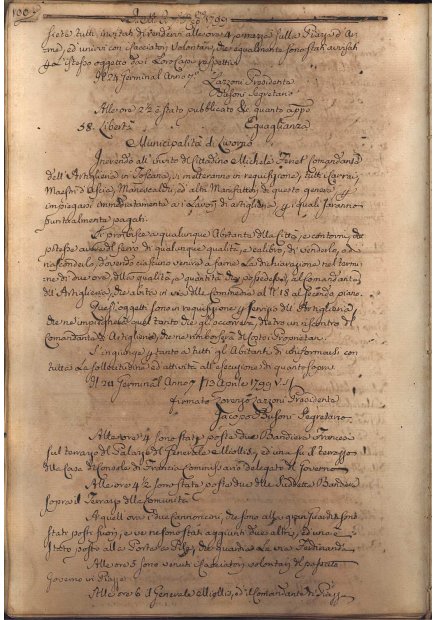 100
siete tutti invitati di rendervi alle ore 4 pomerze sulla Piazza d'Ar=
me, ed unirvi con Cacciatori Volontarj, che egualmente sono stati avvisati
Il 24 Terminal Anno 7°
Lazzoni Presidente
Busoni Segretario
Alle ore 2½ è stato pubblicato quanto appo
58. Libertà Eguaglianza
Municipalità di Livorno
Inerendo all' invito del Cittadino Michele Comandante
dell' Artiglieria in Toscana, si metteranno in requisizione, tutti Carrai,
Maestri d'Ascia, Manescalchi, ed altri Manifattori di questo genere per
impiegarsi immediatamente ai Lavori di artiglieria, i quali saranno
puntualmente pagati.
Si proibisce a qualunque Abitante della Città, e contorni, che
potesse avere del ferro di qualunque qualità, e calibro, di venderlo, o
nasconderlo, dovendo ciascuno venire a farne la dichiarazione nel termi=
ne di due ore, della qualità, e quantità che possedesse, al Comandante
dell' Artiglieria, che abita in via delle Commedie al N. 18 al secondo piano.
Questi oggetti sono in requisizione per servizio dell' Artiglieria
che ne impiegherà quel tanto che gli occorrerà, dietro un riscontro del
Comandante di Artiglieria, che ne rimborserà di costo i Proprietarj.
S'ingiunge pertanto a tutti gli Abitanti di uniformarsi con
tutta la sollecitudine ed attività alla esecuzione di quanto sopra.
Il 24 Terminal Anno 7 / 13 Aprile 1799 V.S /
Firmato Lorenzo Lazzoni Presidente
Jacopo Busoni Segretario
Alle ore 4 sono state poste due Bandiere Francesi
sul terrazzo del Palazzo del Generale Miollis, ed una su il terrazzo
della Casa del Console di Francia Commissario delegato del Governo
Alle ore 4½ sono state poste due delle suddette Bandiere
sopra il Terrazzo della Comunità
A quell' ora i due cannoncini, che sono alla gran Guardia sono
stati posti fuori, e ve ne sono stati aggiunti due altri, ed uno è
stato posto alla Porta a Pisa, che guarda la via Ferdinanda
Alle ore 5 sono venuti i Cacciatori volontarj del passato
Governo in Piazza
Alle ore 6 il Generale Miollis, ed il Comandante di Piazza